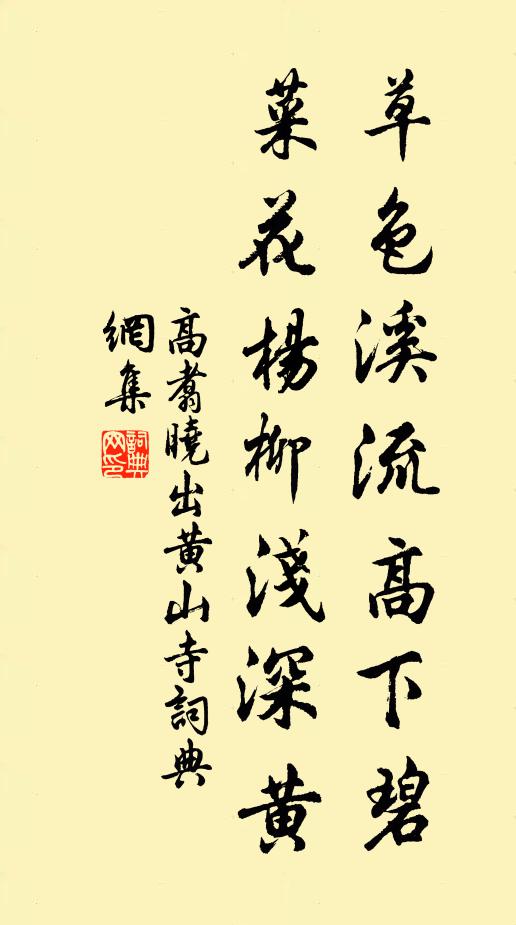 草色溪流高下碧
菜花楊柳淺深黃
高翥曉出黃山寺詞典
網集
詞典
网印